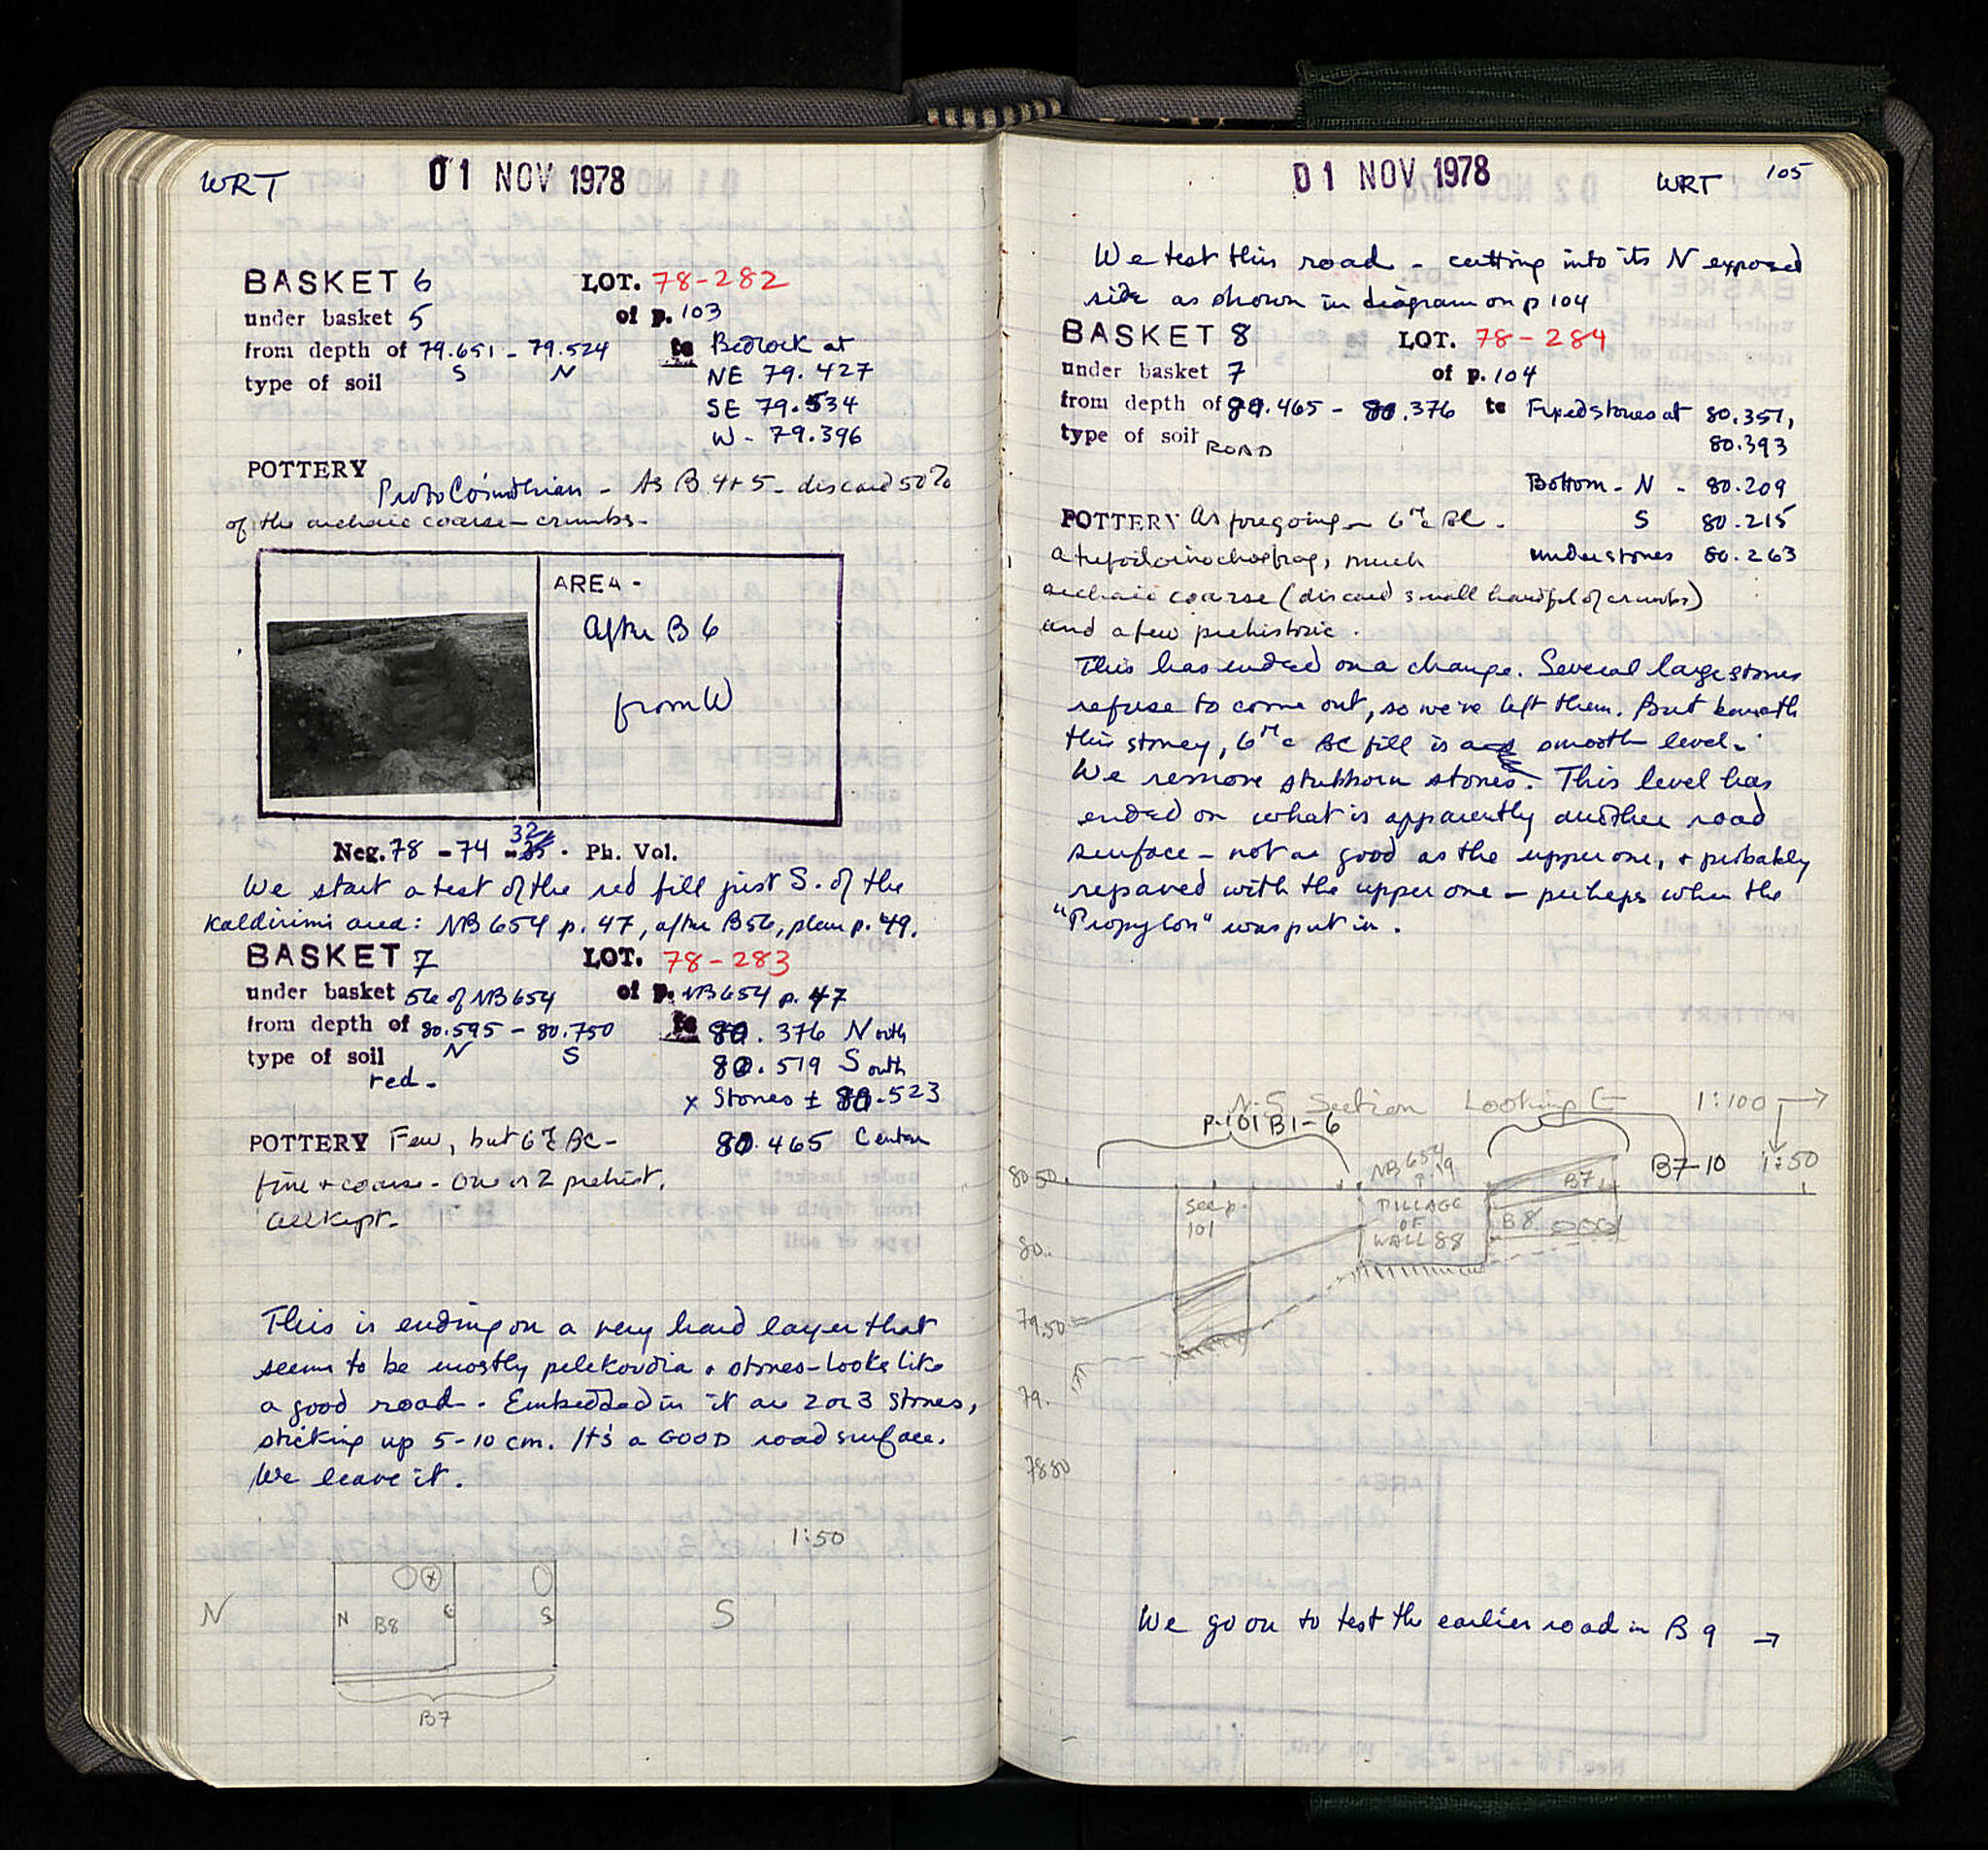 WRT 01 NOV 1978
BASKET 6 LOT. 78-282
under basket 5 of p. 103
from depth of 79.651 - 79.524 to Bedrock at
S N NE 79.427
type of soil
SE 79.534
W - 79.396
POTTERY
ProtoCorinthian - As B 4+5 - discard 50%
of the archaic coarse - crumbs -
AREA -
After B 6
from W
Neg. 78 - 74 - 32 . Ph. Vol.
We start a test of the red fill just S. of the
Kaldirimi area: NB 654 p. 47, after B56, plan p. 49.
BASKET 7 LOT. 78-283
under basket 56 of NB654 of p. NB654 p. 47
from depth of 80.595 - 80.750 to 80.376 North
N S
type of soil 80.519 South
red -
x Stones ± 80.523
POTTERY Few, but 6th c BC - 80.465 Center
fine + coarse - One or 2 prehist.
All kept -
This is ending on a very hard layer that
seems to be mostly pelekoudia + stones - looks like
a good road. Embedded in it are 2 or 3 stones,
sticking up 5-10 cm. It's a GOOD road surface.
We leave it.
1:50
N N B8 C S S
B7
01 NOV 1978 WRT 105
We test this road - cutting into its N exposed
side as shown in diagram on p 104
BASKET 8 LOT. 78-284
under basket 7 of p. 104
from depth of 80.465 - 80.376 to Fixed stones at 80.351,
type of soil ROAD 80.393
Bottom - N - 80.209
POTTERY As foregoing - 6th c BC. S 80.215
a trefoil oinochoe frag, much under stones 80.263
archaic coarse (discard small handful of crumbs)
and a few prehistoric.
This has ended on a change. Several large stones
refuse to come out, so we've left them. But beneath
this stoney, 6th c BC fill is a smooth level.
We remove stubborn stones. This level has
ended on what is apparently another road
surface - not as good as the upper one, + probably
repaved with the upper one - perhaps when the
"Propylon" was put in.
N-S Section Looking E 1:100 →
p. 101 B1-6
NB 654 p. 19
B7-10 1:50
80.50
see p. 101
PILLAGE OF WALL 88
B7
B8
80.
79.50
79.
78.80
We go on to test the earlier road in B 9 →